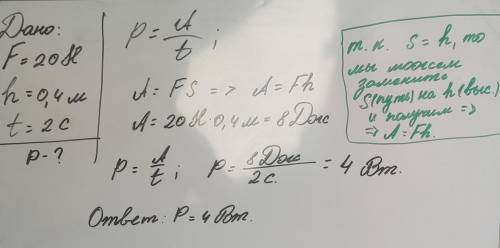 Дано:
F = 20 Н
h = 0,4 м
t = 2 с
P - ?
P = A/t ;
A = FS => A = Fh
A = 20 Н · 0,4 м = 8 Дж
P = A/t ; P = 8 Дж/2 с. = 4 Вт.
Ответ: P = 4 Вт.
т. к. S = h, то
мы можем
заменить
S(путь) на h(выс.)
и получим =>
=> A = Fh.